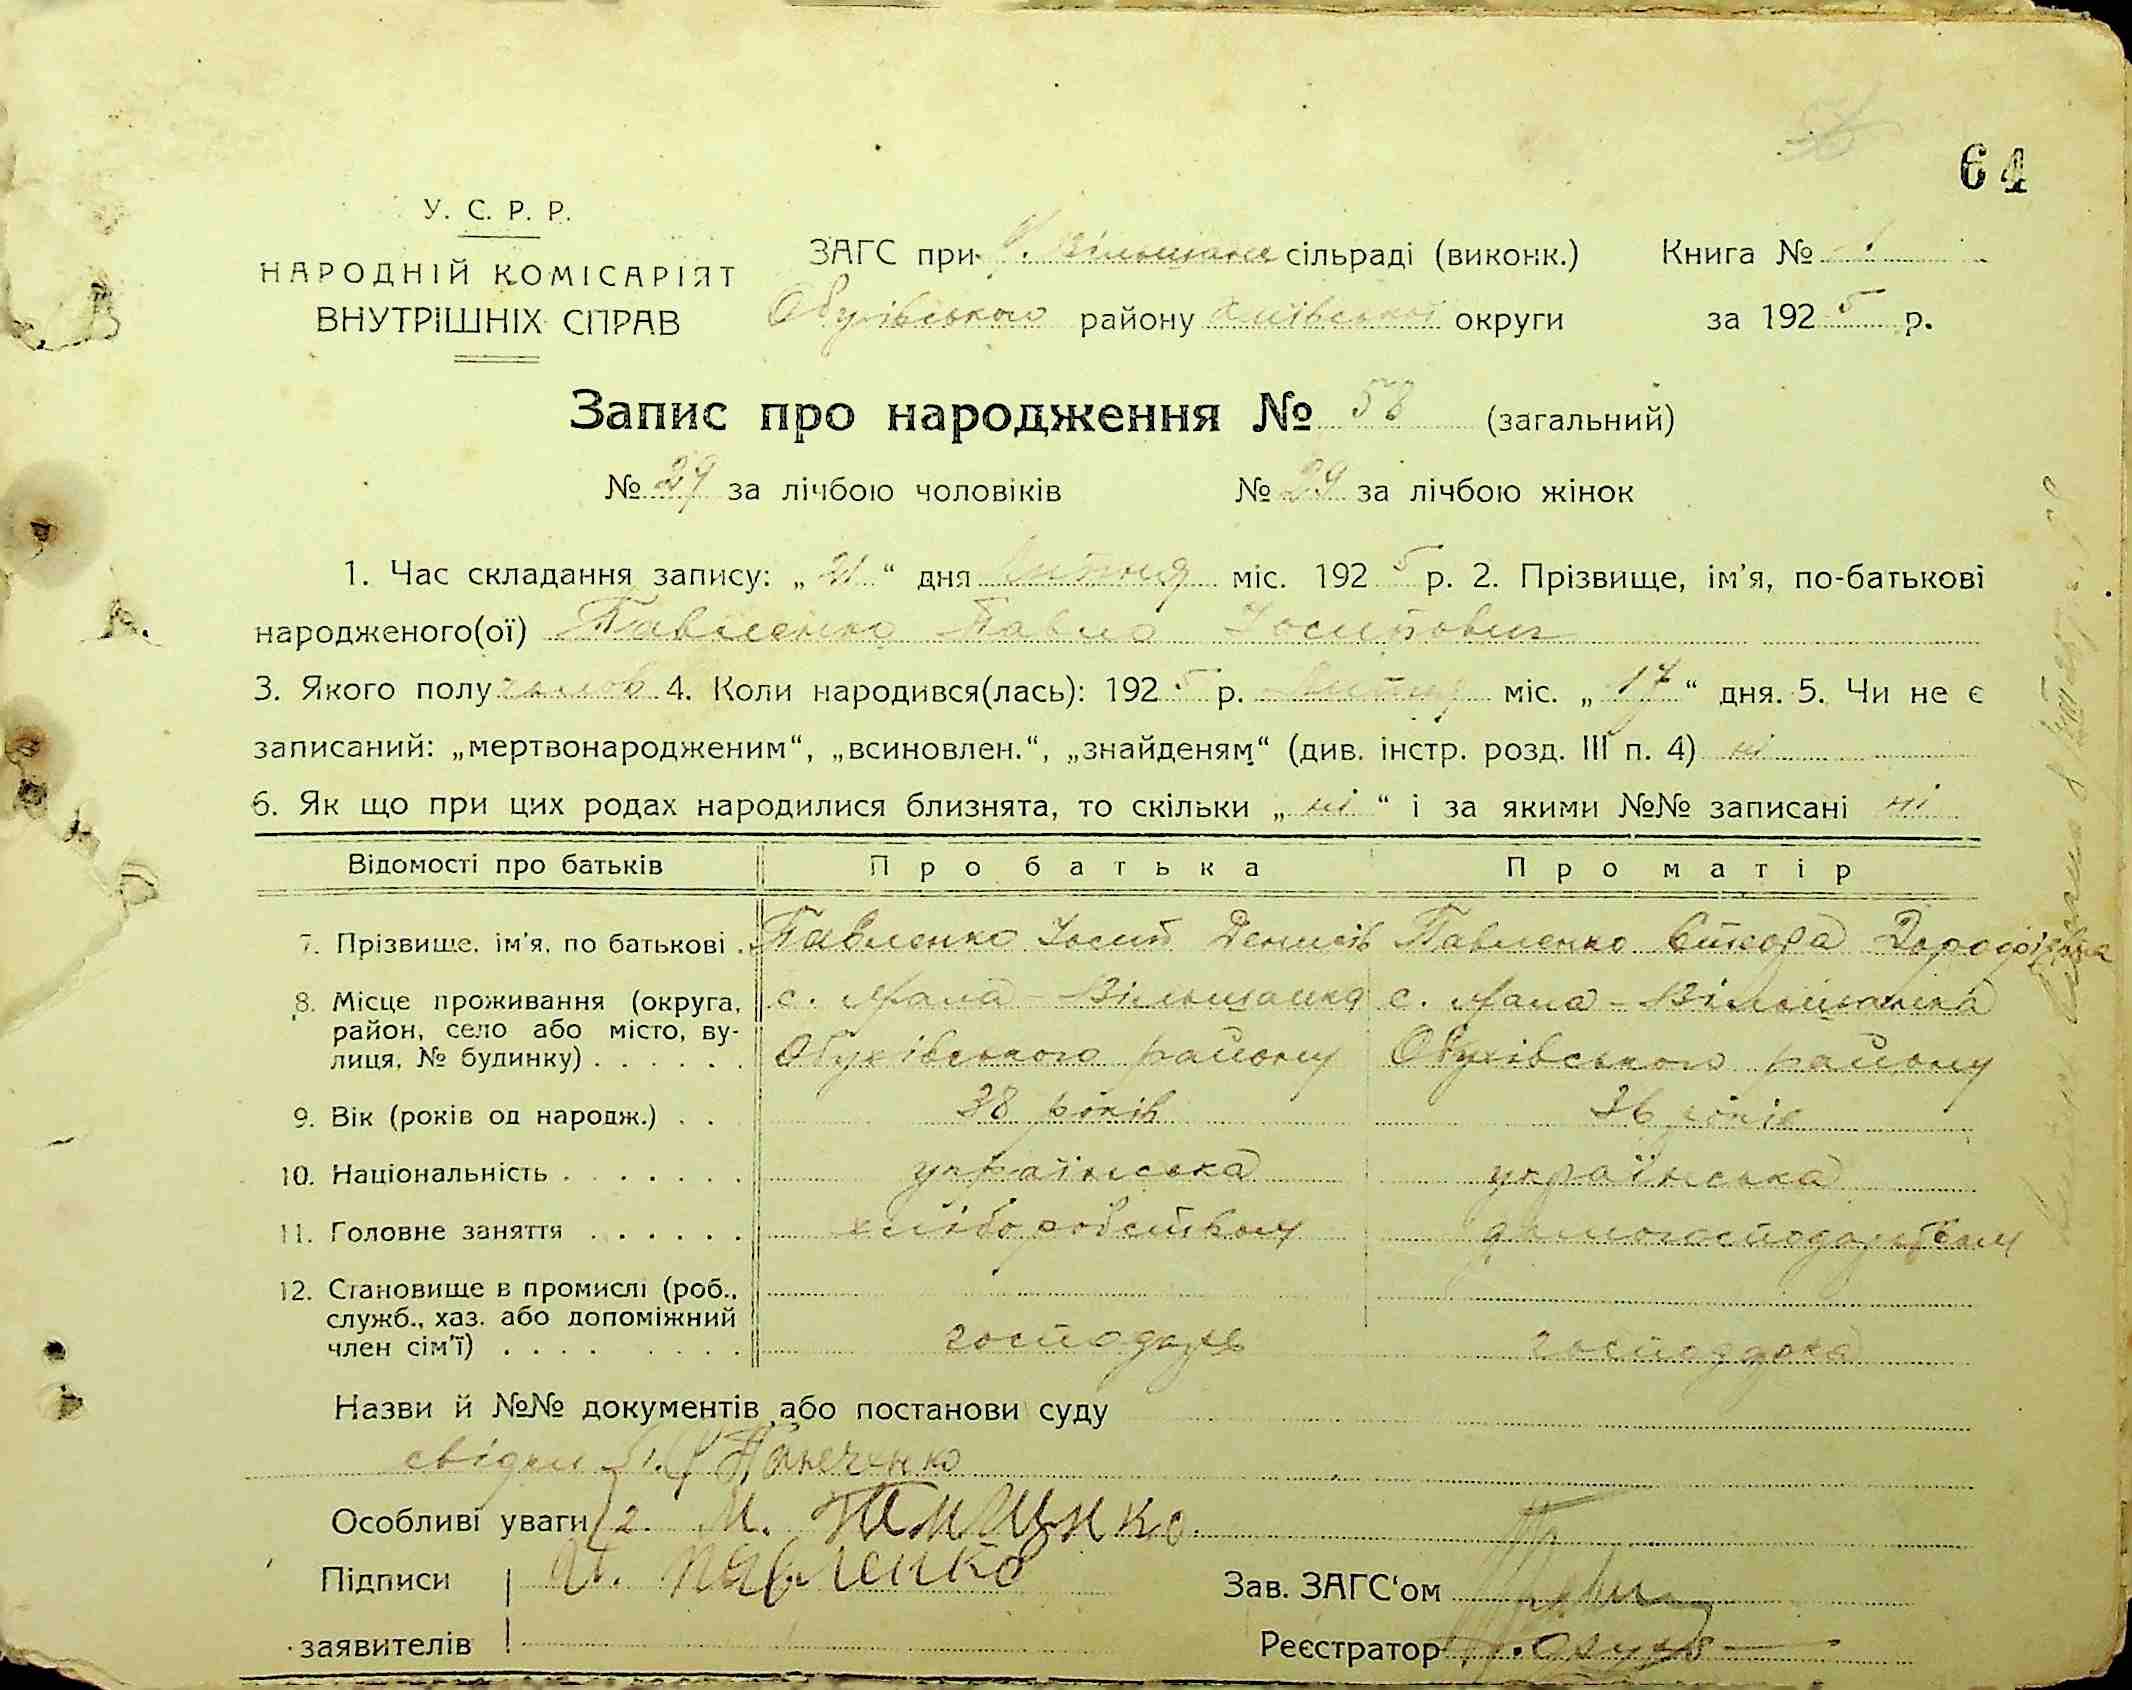 64
У. С. Р. Р.
НАРОДНІЙ КОМІСАРІЯТ
ВНУТРІШНІХ СПРАВ
ЗАГС при Вільшане сільраді (виконк.) Книга № 1
Обухівського району Київської округи за 1925 р.
Запис про народження № 58 (загальний)
№ 29 за лічбою чоловіків № 29 за лічбою жінок
1. Час складання запису: „21“ дня Липня міс. 1925 р. 2. Прізвище, ім'я, по-батькові
народженого(ої) Павленко Павло Иосипович
3. Якого полу чолов 4. Коли народився(лась): 1925 р. Липня міс. „17“ дня. 5. Чи не є
записаний: „мертвонародженим“, „всиновлен.“, „знайденям“ (див. інстр. розд. III п. 4) ні
6. Як що при цих родах народилися близнята, то скільки „ні“ і за якими №№ записані ні
Відомості про батьків Про батька Про матір
7. Прізвище, ім'я, по батькові . Павленко Иосип Денисів Павленко Дорофіевна
8. Місце проживання (округа, с. Мала-Вільшанка с. Мала-Вільшанка
район, село або місто, ву-
лиця, № будинку) . . . . . . Обухівського району Обухівського району
9. Вік (років од народж.) . . 38 років 36 років
10. Національність . . . . . . . українська українська
11. Головне заняття . . . . . . хліборобством домогосподарством
12. Становище в промислі (роб.,
служб., хаз. або допоміжний
член сім'ї) . . . . . . . . господарь господарка
Назви й №№ документів або постанови суду
свідки 1.
Особливі уваги 2. М.
Підписи И. Павленко Зав. ЗАГС'ом
заявителів Реєстратор